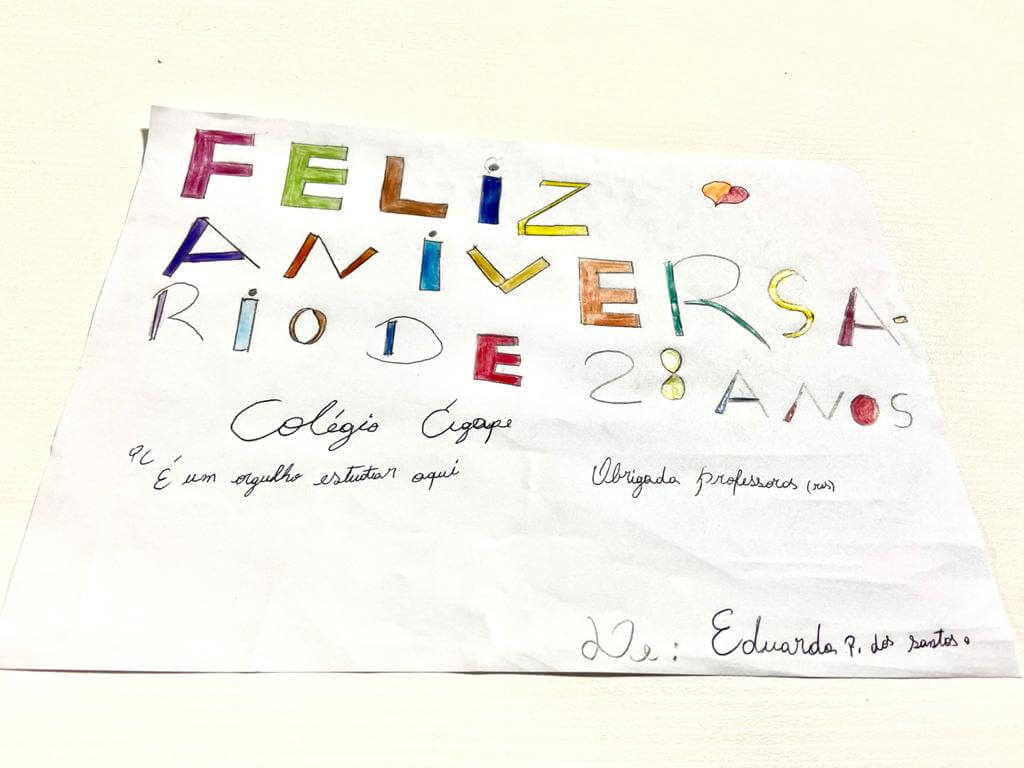 FELiZ
ANiVERSA-
RiO DE 28 ANOS
Colégio Ágape
É um orgulho estudiar aqui
Obrigada professoras (res)
De: Eduarda P. dos santos.